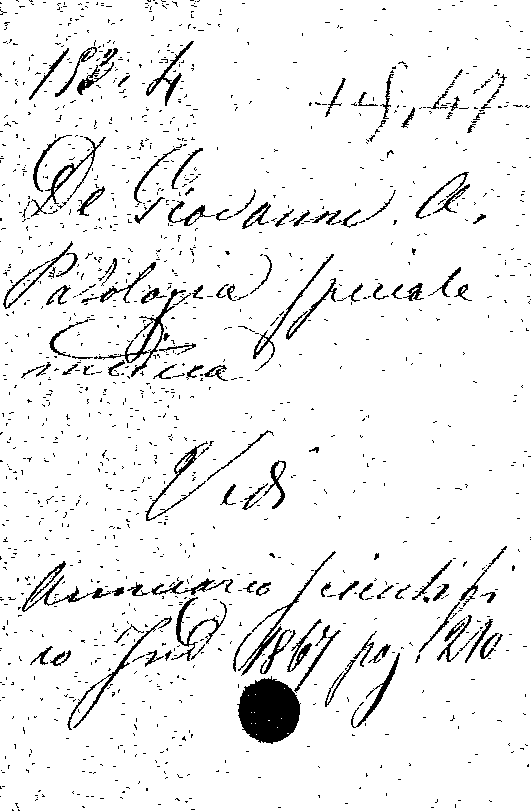 153.4
+ 5,47
De Giovanni. A.
Patologia speciale
medica
Vedi
Annuario scientifi
co Ind 1867 pag. 210